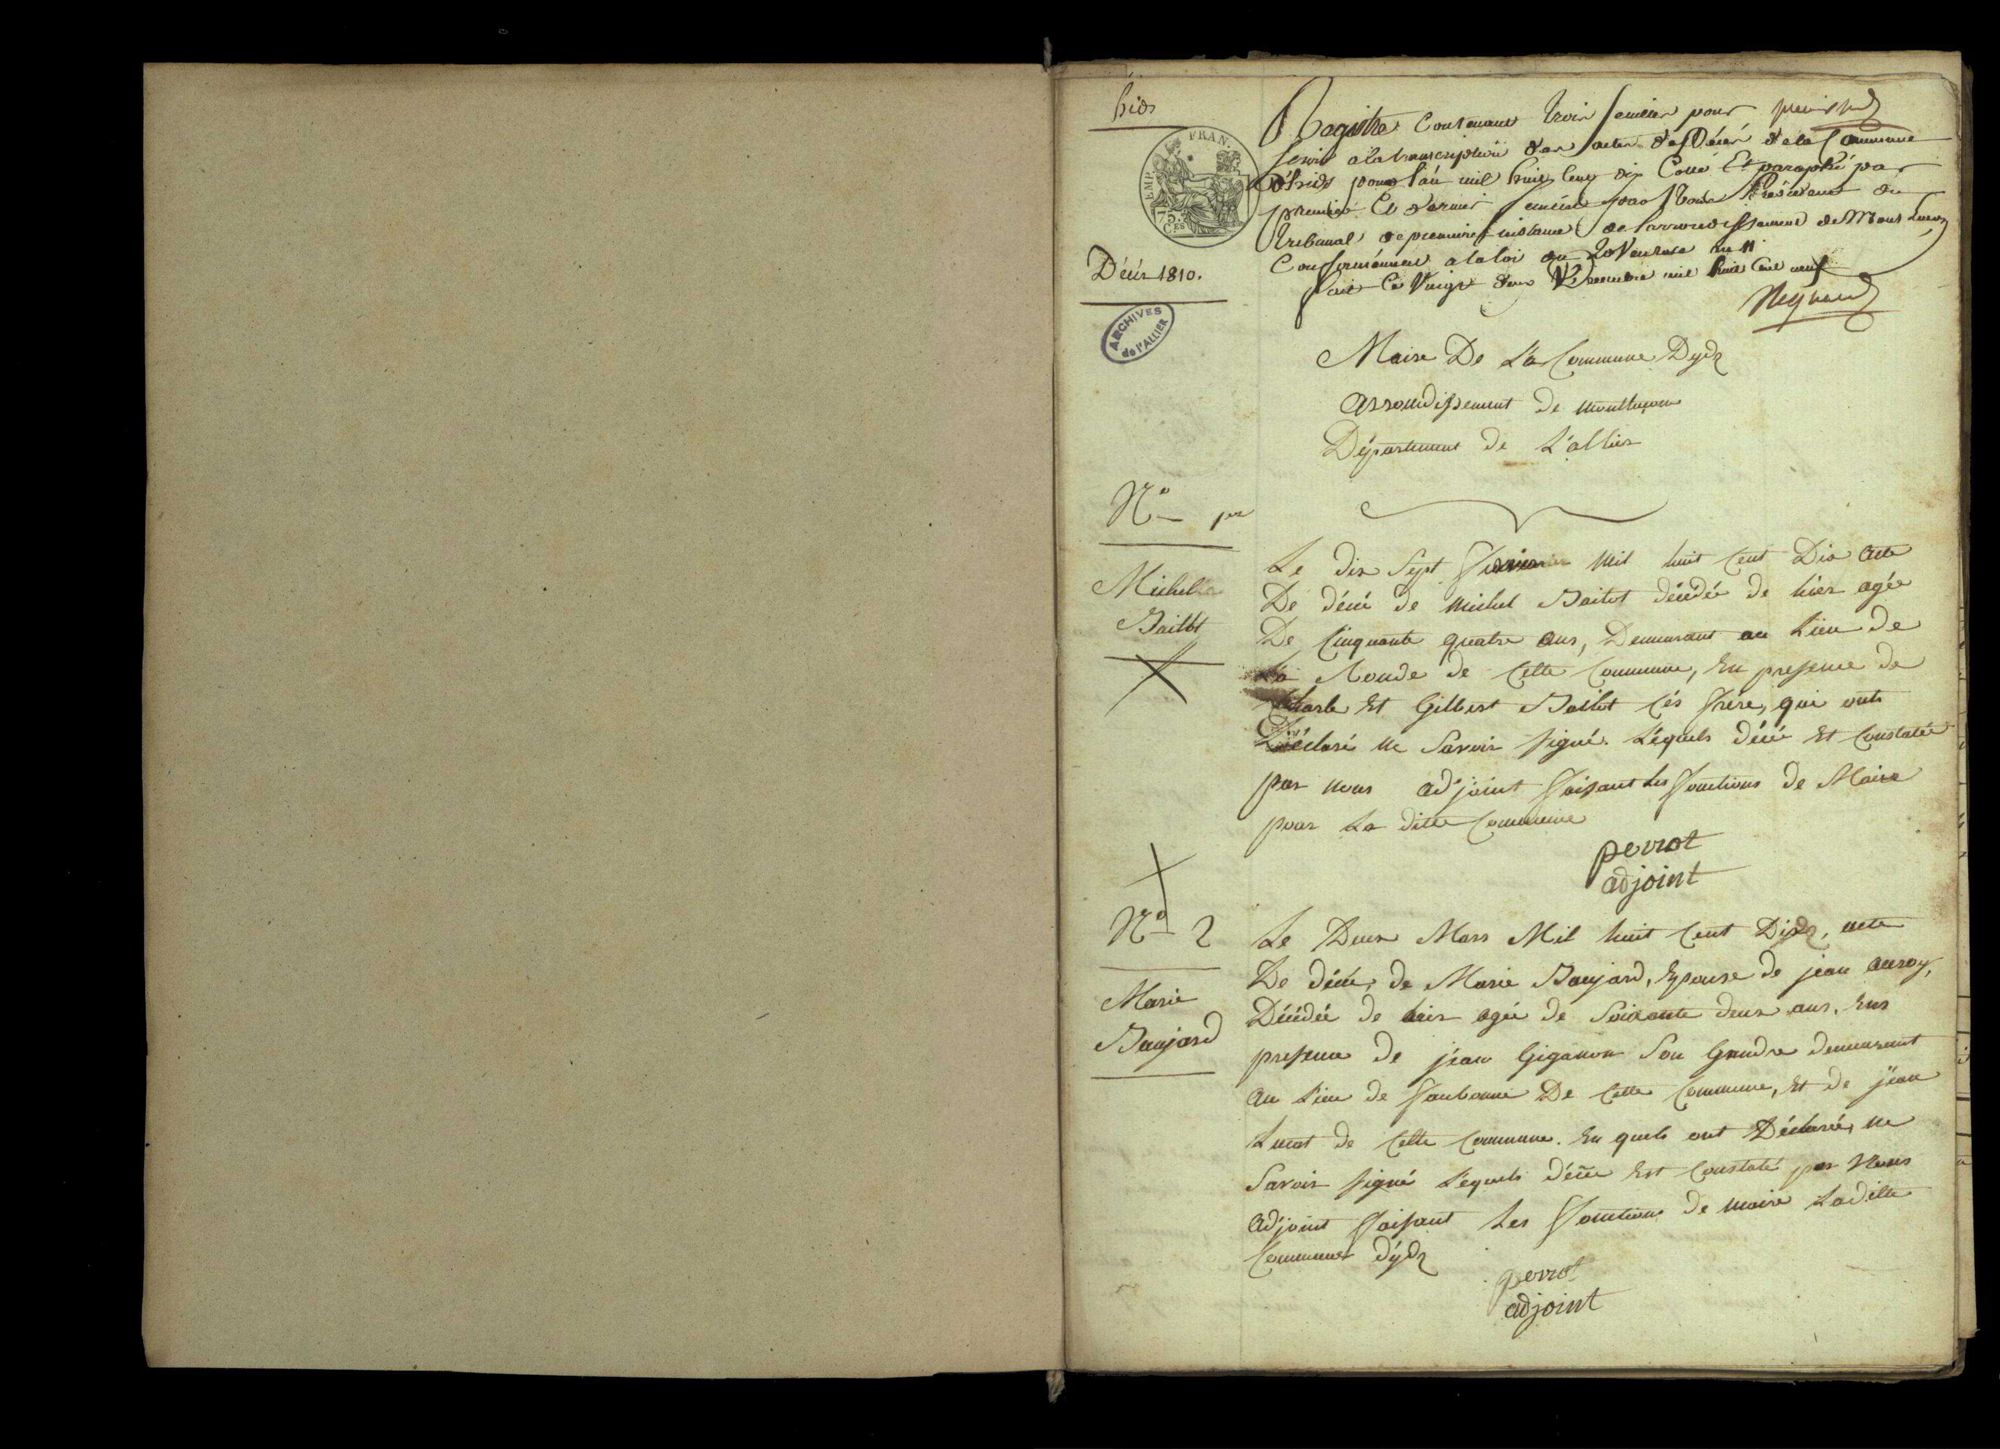 hids
EMP. FRAN.
75.
CES
Décès 1810.
ARCHIVES
de l'ALLIER
Registre Contenant trois feuillets pour
servir a la transcription des actes de Décès de la Commune
d'hids pour l'an mil huit cent dix Cotté Et paraphé par
premier Et dernier feuillet par Nous Président du
tribunal de premiere instance de l'arrondissement de Mont Luçon
Conformément a la loi du 20 Ventose an 11
fait Ce Vingt deux Xbre mil huit Cent neuf
Maire De La Commune Dydz
arrondissement de montluçon
Département de L'allier
No per
Michel
Bailot
Le dix Sept Mil huit Cent Dix acte
De décé de Michel Bailot décédée de hier agée
De Cinquante quatre ans, Demeurant au Lieu de
La Ronde de Cette Commune, En presence de
Charle Et Gilbert Bailot Cés frére, qui onts
Déclaré ne Savoir signé. Léquels décé Et Constatée
par nous adjoint faisant Les fonctions de Maire
pour La ditte Commune
perrot
adjoint
No 2
Marie
Baujard
Le Deux Mars Mil huit Cent Dix, acte
De décé, de Marie Baujard, Epouse de jean auroy,
Décédée de hier agée de Soixante deux ans, En
presence de jean Giganon Son Gendre demeurant
au Lieu de De Cette Commune, Et de jean
de Cette Commune. En quels ont Déclarée, ne
Savoir signé Léquels décée Est Constaté par Nous
adjoint faisant Les fonctions de maire Laditte
Commune dydz
perrot
adjoint